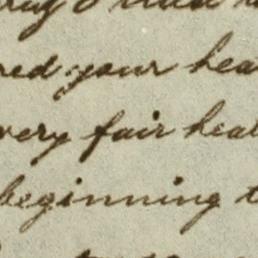 red your hea
very fair heal
beginning t